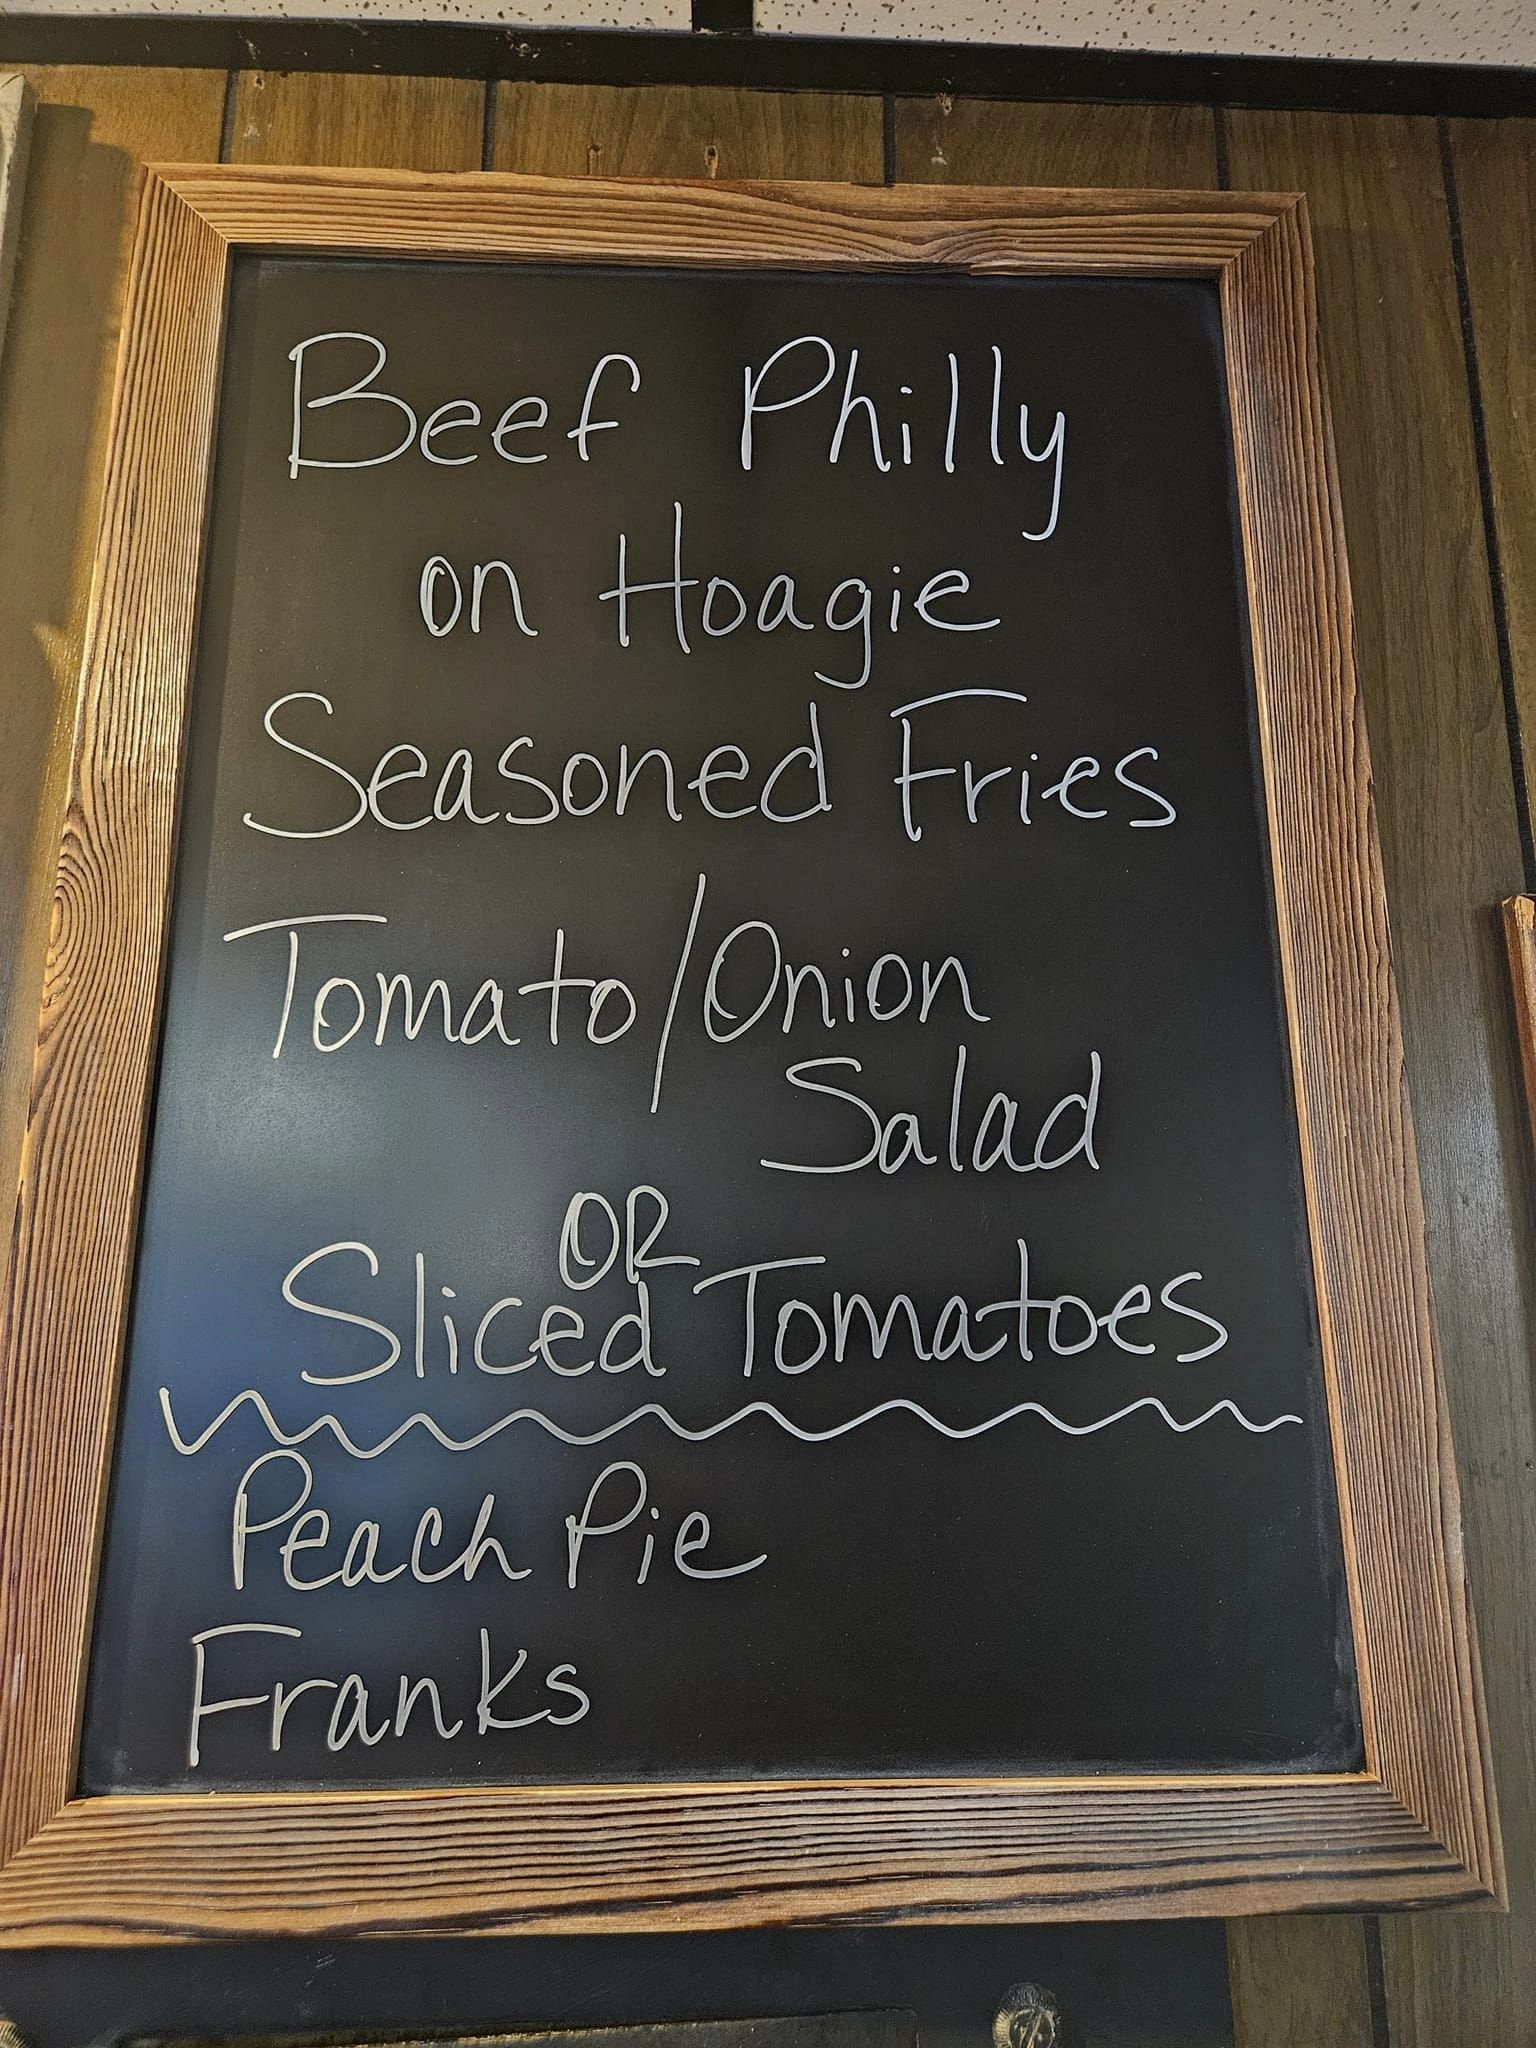 Beef Philly
on Hoagie
Seasoned Fries
Tomato/Onion
Salad
OR
Sliced Tomatoes
Peach Pie
Franks